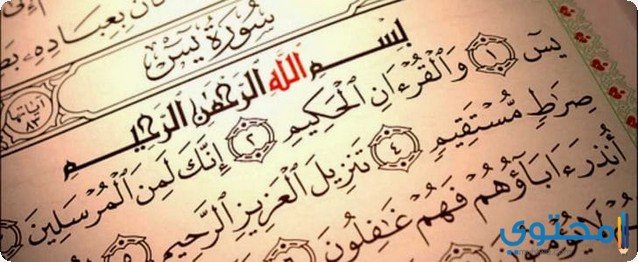 بِعِبَادِهِۦ
سُورَةُ يسٓ
آياتها ٨٣
بِسْمِ ٱللَّهِ ٱلرَّحْمَٰنِ ٱلرَّحِيمِ
يسٓ ١ وَٱلْقُرْءَانِ ٱلْحَكِيمِ ٢ إِنَّكَ لَمِنَ ٱلْمُرْسَلِينَ
صِرَٰطٍ مُّسْتَقِيمٍ ٤ تَنزِيلَ ٱلْعَزِيزِ ٱلرَّحِيمِ ٥
أُنذِرَ ءَابَآؤُهُمْ فَهُمْ غَٰفِلُونَ
محتوى